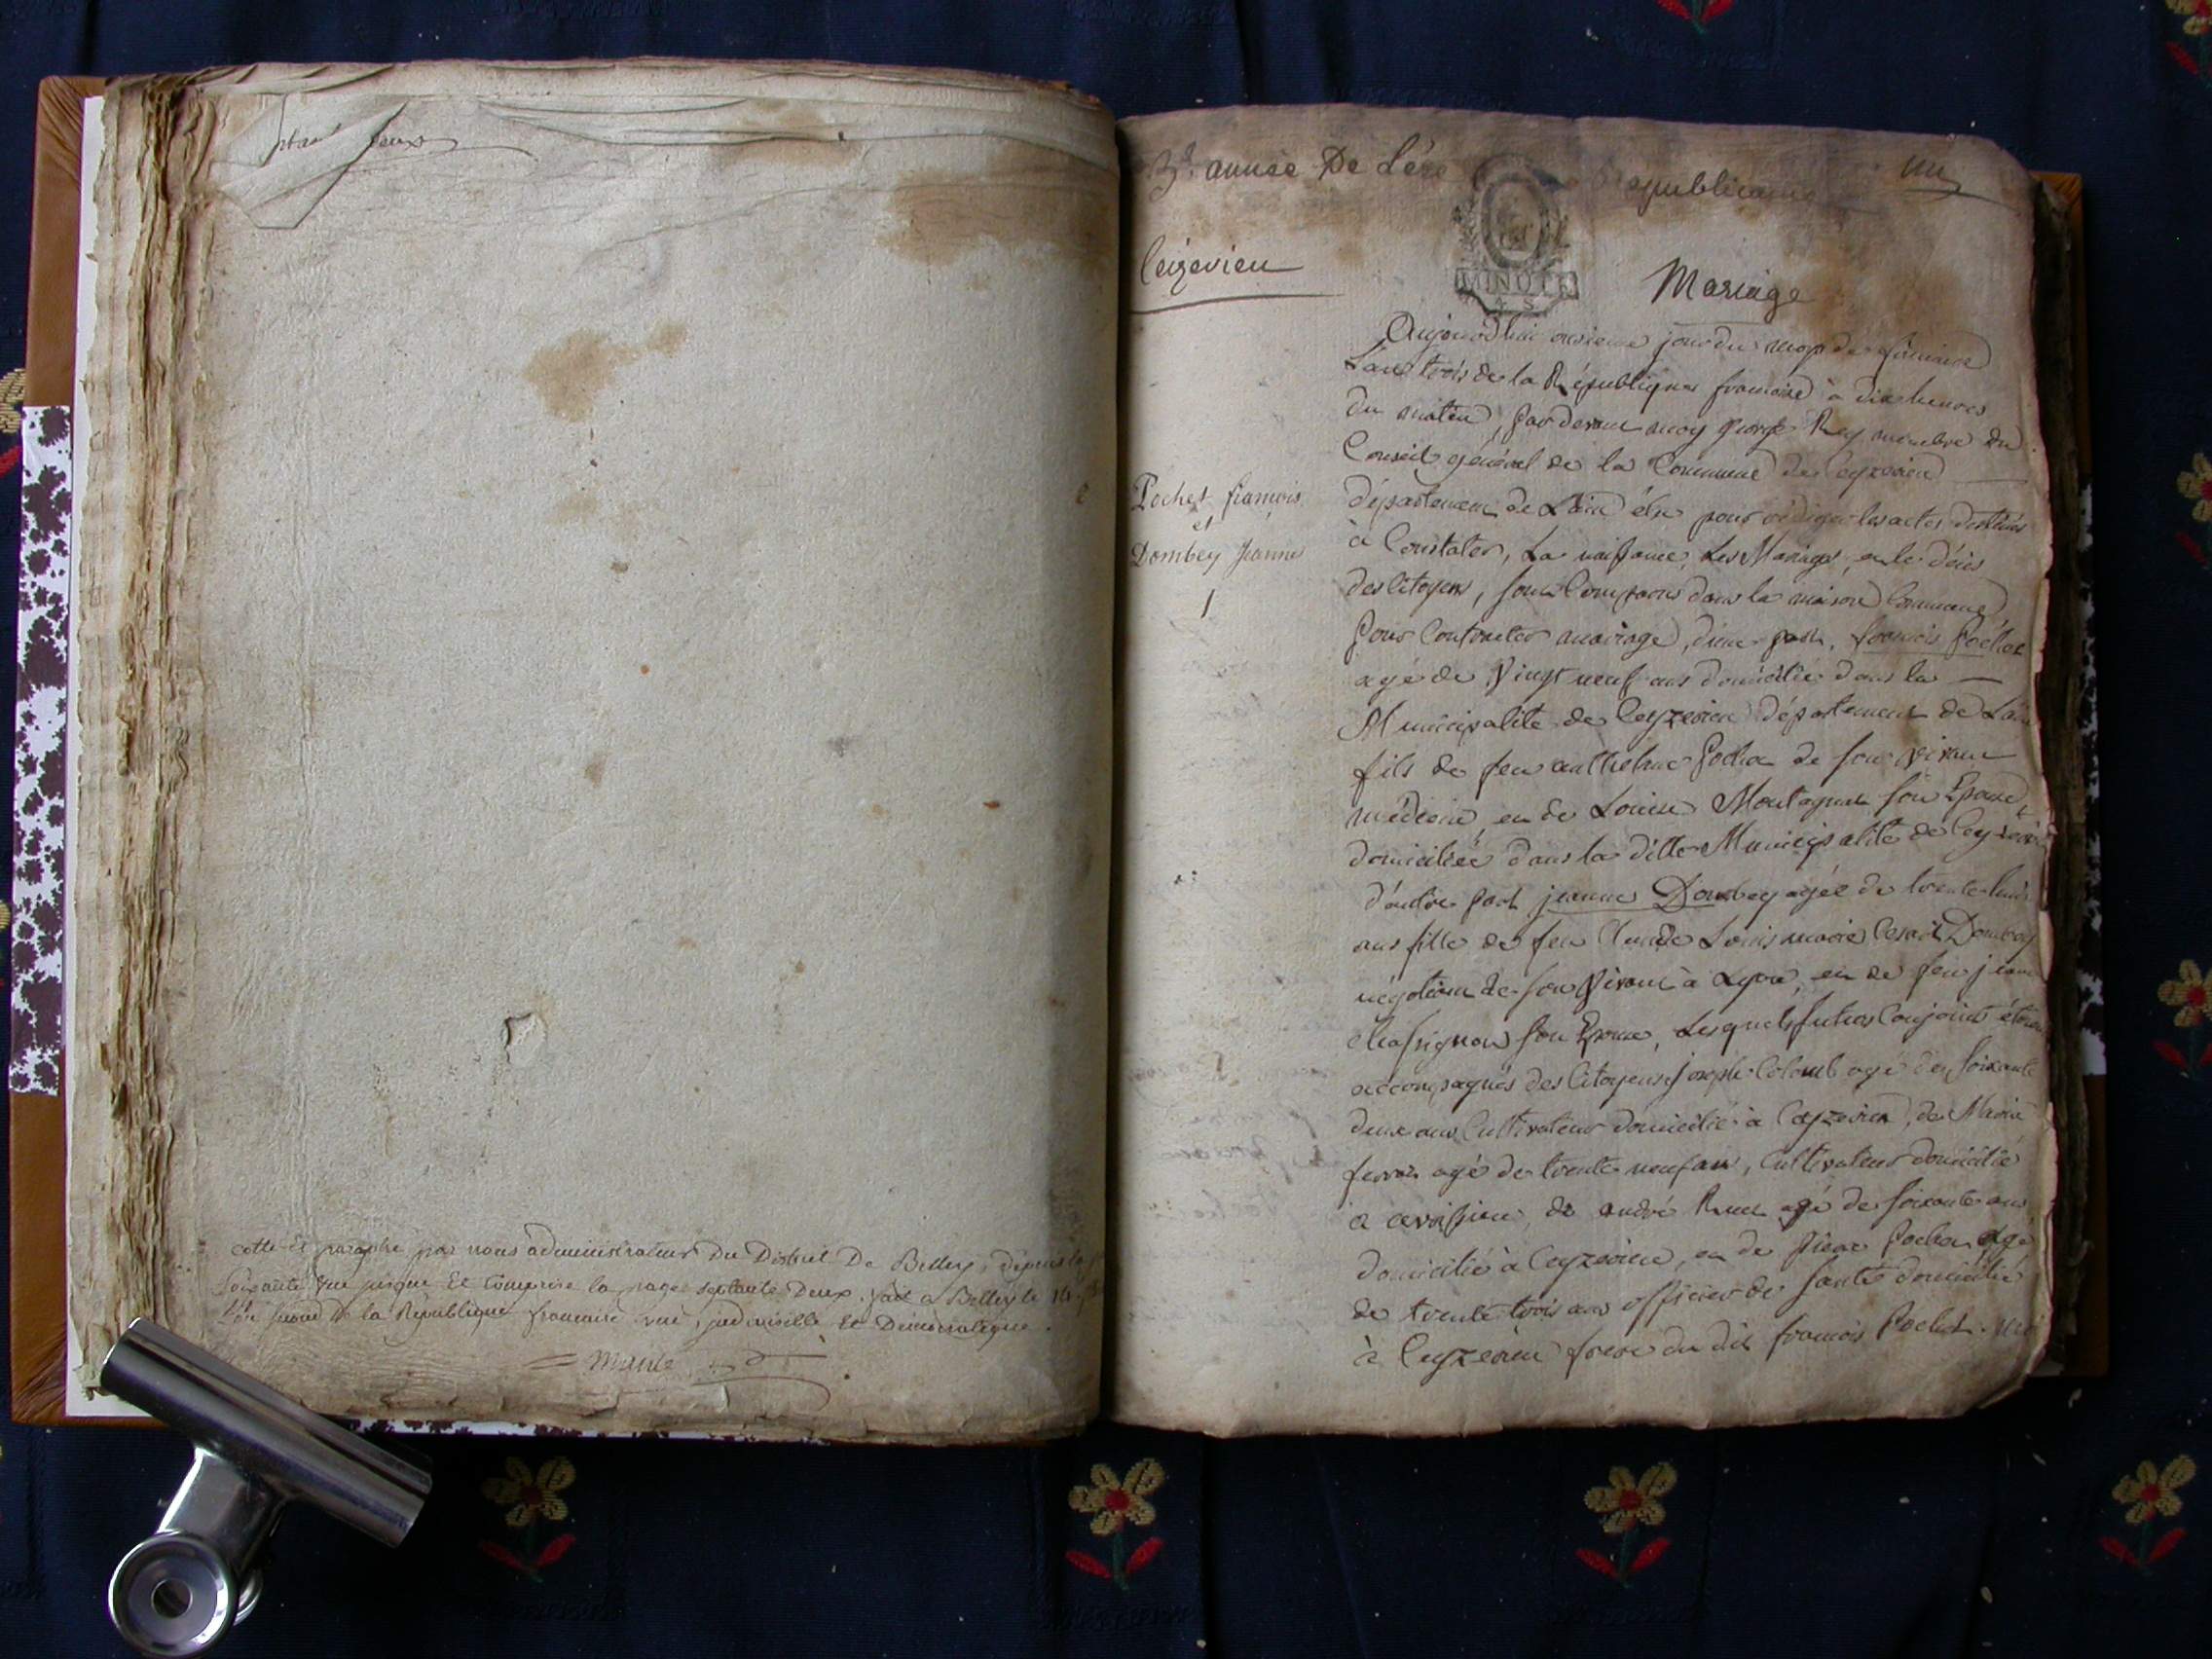 deux
cotté Et paraphé par nous administrateur Du District De Belley, depuis la
soixante une jusque Et comprise la page septante Deux. fait a Belley le 14
L'an second de la République francaise une, indivisible Et Democratique.
3e. année De L'ére Republicaine
Ceizerieu
MINUTE
4 S
Mariage
Aujourd'hui onzieme jour du mois de frimaire
L'an trois de la République francaise à dix heures
du matin, par devant moy George Rey membre du
Conseil général de la Commune de Ceyzerieu
Pochet francois
et
Dombey Jeanne
1
département de L'ain élu pour rédiger les actes destinés
à Constater, la naissance, Les Mariages, et le décès
des Citoyens, sont Comparus dans la maison Commune
pour Contracter mariage, d'une part, francois Pochet
agé de Vingt neuf ans domicilié dans la
Municipalité de Ceyzerieu département de L'ain
fils de feu anthelme Pochet de son vivant
médecin, et de Louise Montagnat son Epouse
domiciliée dans la ditte Municipalité de Ceyzerieu
d'autre part jeanne Dombey agée de trente huit
ans fille de feu Claude Louis marie Cesard Dombey
négotiant de son Vivant à Lyon, et de feu jeanne
Chassignon son Epouse, Lesquels futurs Conjoints étant
accompagnés des Citoyens joseph Colomb agé de soixante
deux ans Cultivateur domicilié à Ceyzerieu, de Marin
agé de trente neuf ans, Cultivateur domicilié
a avrissieu, de andré agé de soixante ans
domicilié à Ceyzerieu, et de Pierre Pochet agé
de trente trois ans officier de santé domicilié
à Ceyzerieu frere du dit francois Pochet.